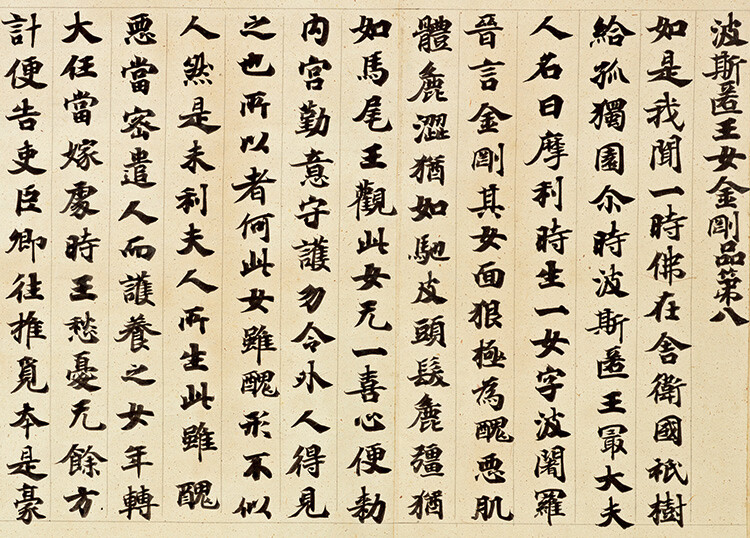 波斯匿王女金剛品第八
如是我聞一時佛在舍衛國祇樹
給孤獨園尒時波斯匿王㝡大夫
人名曰摩利時生一女字波闍羅
晉言金剛其女面狠極為醜惡肌
體麁澀猶如駞皮頭髮麁彊猶
如馬尾王觀此女无一喜心便勑
内宮勤意守護勿令外人得見
之也所以者何此女雖醜形不似
人然是末利夫人所生此雖醜
惡當密遣人而護養之女年轉
大任當嫁處時王愁憂无餘方
計便告吏臣卿往推覓本是豪